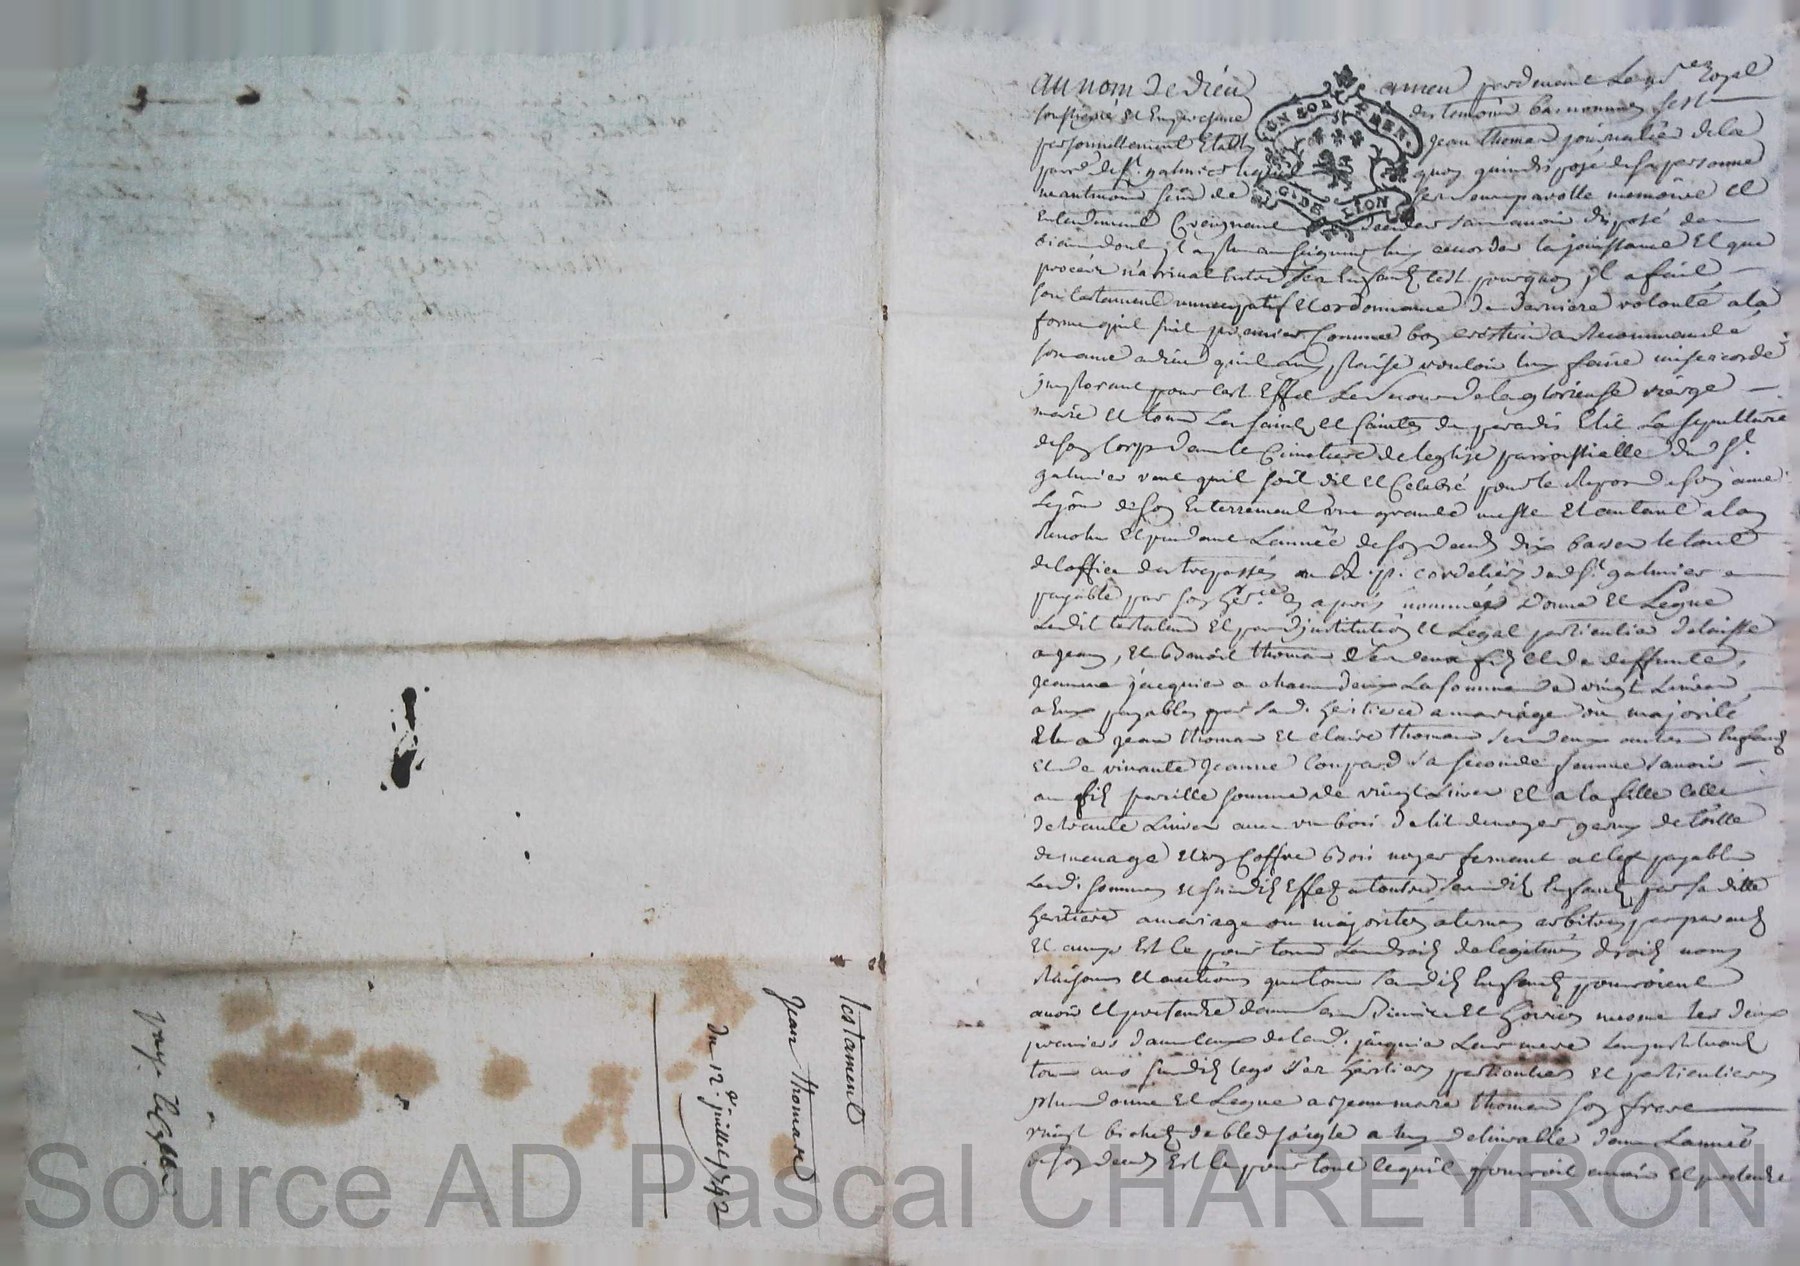 au nom de dieu amen pardevant le no.re Royal
soussigné et En presence des temoins bas nommés fest
personnellement Etably Jean thomas journalier de la
parr. de St. galmier lequel quoy qu'indisposé de sa personne
neantmoins sein de ses sens parolle memoire et
Entendement Craignant decedder sans avoir disposé des
biens dont il a plu au seigneur luy accorder la jouissance Et que
procés n'arrivat Entre ses Enfants c'est pourquoy jl a fait
son testament nuncupatif et ordonnance de derniere volonté a la
forme qui suit premier Comme bon crêtien a Recommandé
son ame a dieu qu'il luy plaise vouloir luy faire misericorde
jmplorant pour cest Effet le secour de la glorieuse vierge
marie et tous les saints et saintes du paradis Elit la sepulture
de son corps dans le Cimetiere de leglise parroissialle du d. St.
galmier veut qu'il soit dit et Celebré pour le Repos de son ame
le jour de son Enterrement une grande messe Et autant a lan
Revolu Et pendant l'année de son deces dix basses le tout
de loffice des trepassés au R. p. cordeliers dud. St. galmier
payable par son her.re cy apres nommée donne Et Legue
Ledit testateur Et par d'jnstitution et Legat particulier delaisse
a jean, et Benoit thomas ses deux fils et de deffunte
jeanne jacquier a chacun d'eux la somme de vingt Livres
a Eux payables par sad. heritiere a mariage ou majorité
Et a jean thomas et claire thomas ses deux autres Enfants
et de vivante jeanne Coupard sa seconde femme savoir
au fils pareille somme de vingt Livres Et a la fille Celle
de trante Livres avec un bois de lit de noyer garny de toille
de menage et un Coffre Bois noyer fermant a clef payables
lesd. sommes et susdits Effets a toutes sesdits Enfants par sa ditte
heritiere a mariage ou majorités a termes arbitrés par parents
et amys Et ce pour tous les droits de legitimes droits noms
Raisons et actions que tous sesdits Enfants pourroient
avoir et pretendre dans ses Biens et Hoiries mesme les deux
premiers dans ceux de lad. jacquier Leur mere les jnstituant
tous aux susdits legs ses heritiers particuliers et particulieres
plus donne Et Legue a jean marie thomas son frere
vingt bichets de bled seigle a luy delivrable dans Lannée
de son deces Et ce pour tout ce qu'il pourroit avoir et pretendre
Testament
jean thomas
du 12.e juillet 1742
Source AD Pascal CHAREYRON